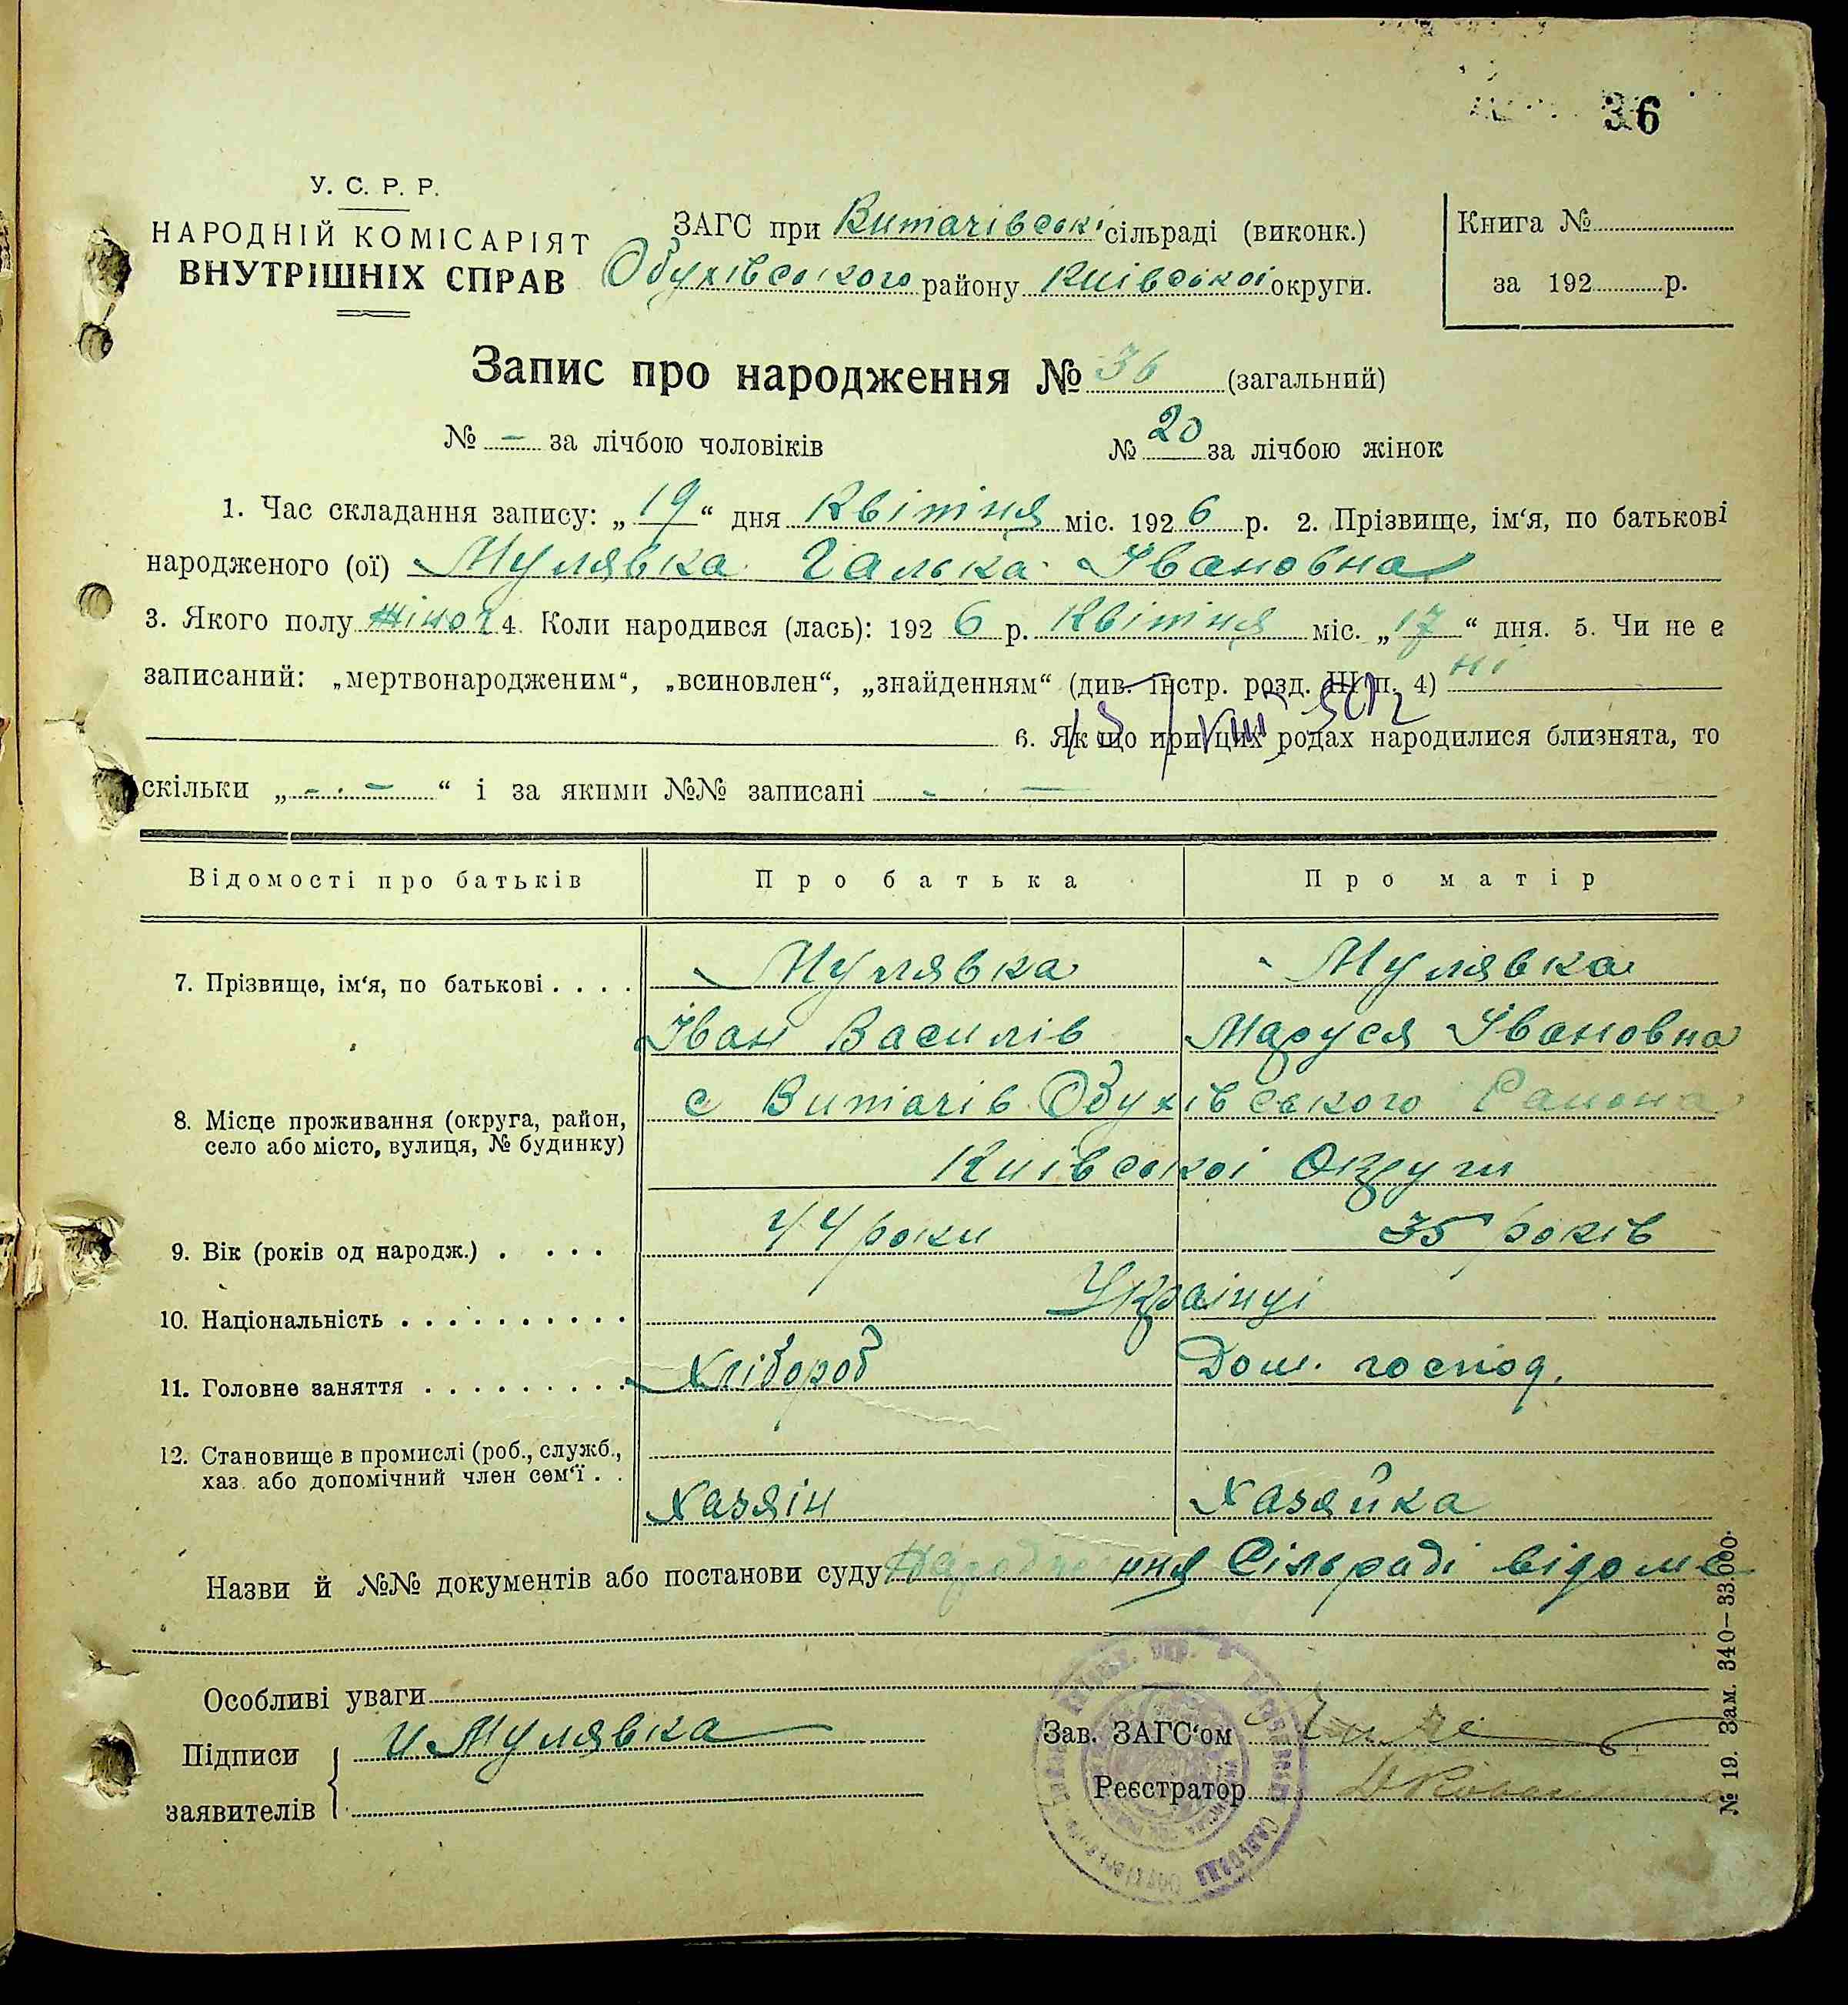 36
У. С. Р. Р.
НАРОДНІЙ КОМІСАРІЯТ
ВНУТРІШНІХ СПРАВ
ЗАГС при Витачівські сільраді (виконк.)
Обухівського району Київської округи.
Книга №
за 192 р.
Запис про народження № 36 (загальний)
№ – за лічбою чоловіків № 20 за лічбою жінок
1. Час складання запису: „19“ дня Квітня міс. 1926 р. 2. Прізвище, ім‘я, по батькові
народженого (ої) Мулявка Галька Івановна
3. Якого полу жіноч 4. Коли народився (лась): 1926 р. Квітня міс. „17“ дня. 5. Чи не є
записаний: „мертвонародженим“, „всиновлен“, „знайденням“ (див. інстр. розд. III п. 4) ні
6. Якщо при цих родах народилися близнята, то
скільки „- . –“ і за якими №№ записані - . —
Відомості про батьків Про батька Про матір
7. Прізвище, ім‘я, по батькові . . . . Мулявка Мулявка
Іван Василів Маруся Івановна
8. Місце проживання (округа, район, с Витачів Обухівського Района
село або місто, вулиця, № будинку) Київської Округи
9. Вік (років од народж.) . . . . 44 роки 35 років
10. Національність . . . . . . . . . . Українці
11. Головне заняття . . . . . . . . . Хлібороб Дом. господ.
12. Становище в промислі (роб., служб.,
хаз. або допомічний член сем‘ї . . Хазяін Хазяйка
Назви й №№ документів або постанови суду Народження Сільраді відоме
Особливі уваги
Підписи И Мулявка
заявителів
Зав. ЗАГС‘ом
Реєстратор
№ 19. Зам. 340—33.000.